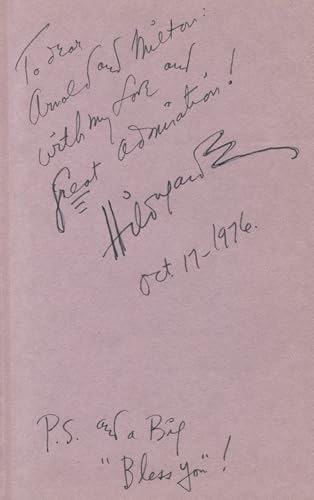 To dear
Arnold and Milton:
with my love and
great admiration!
Hildegarde
Oct. 17-1976.
P.S. and a Big
"Bless you"!